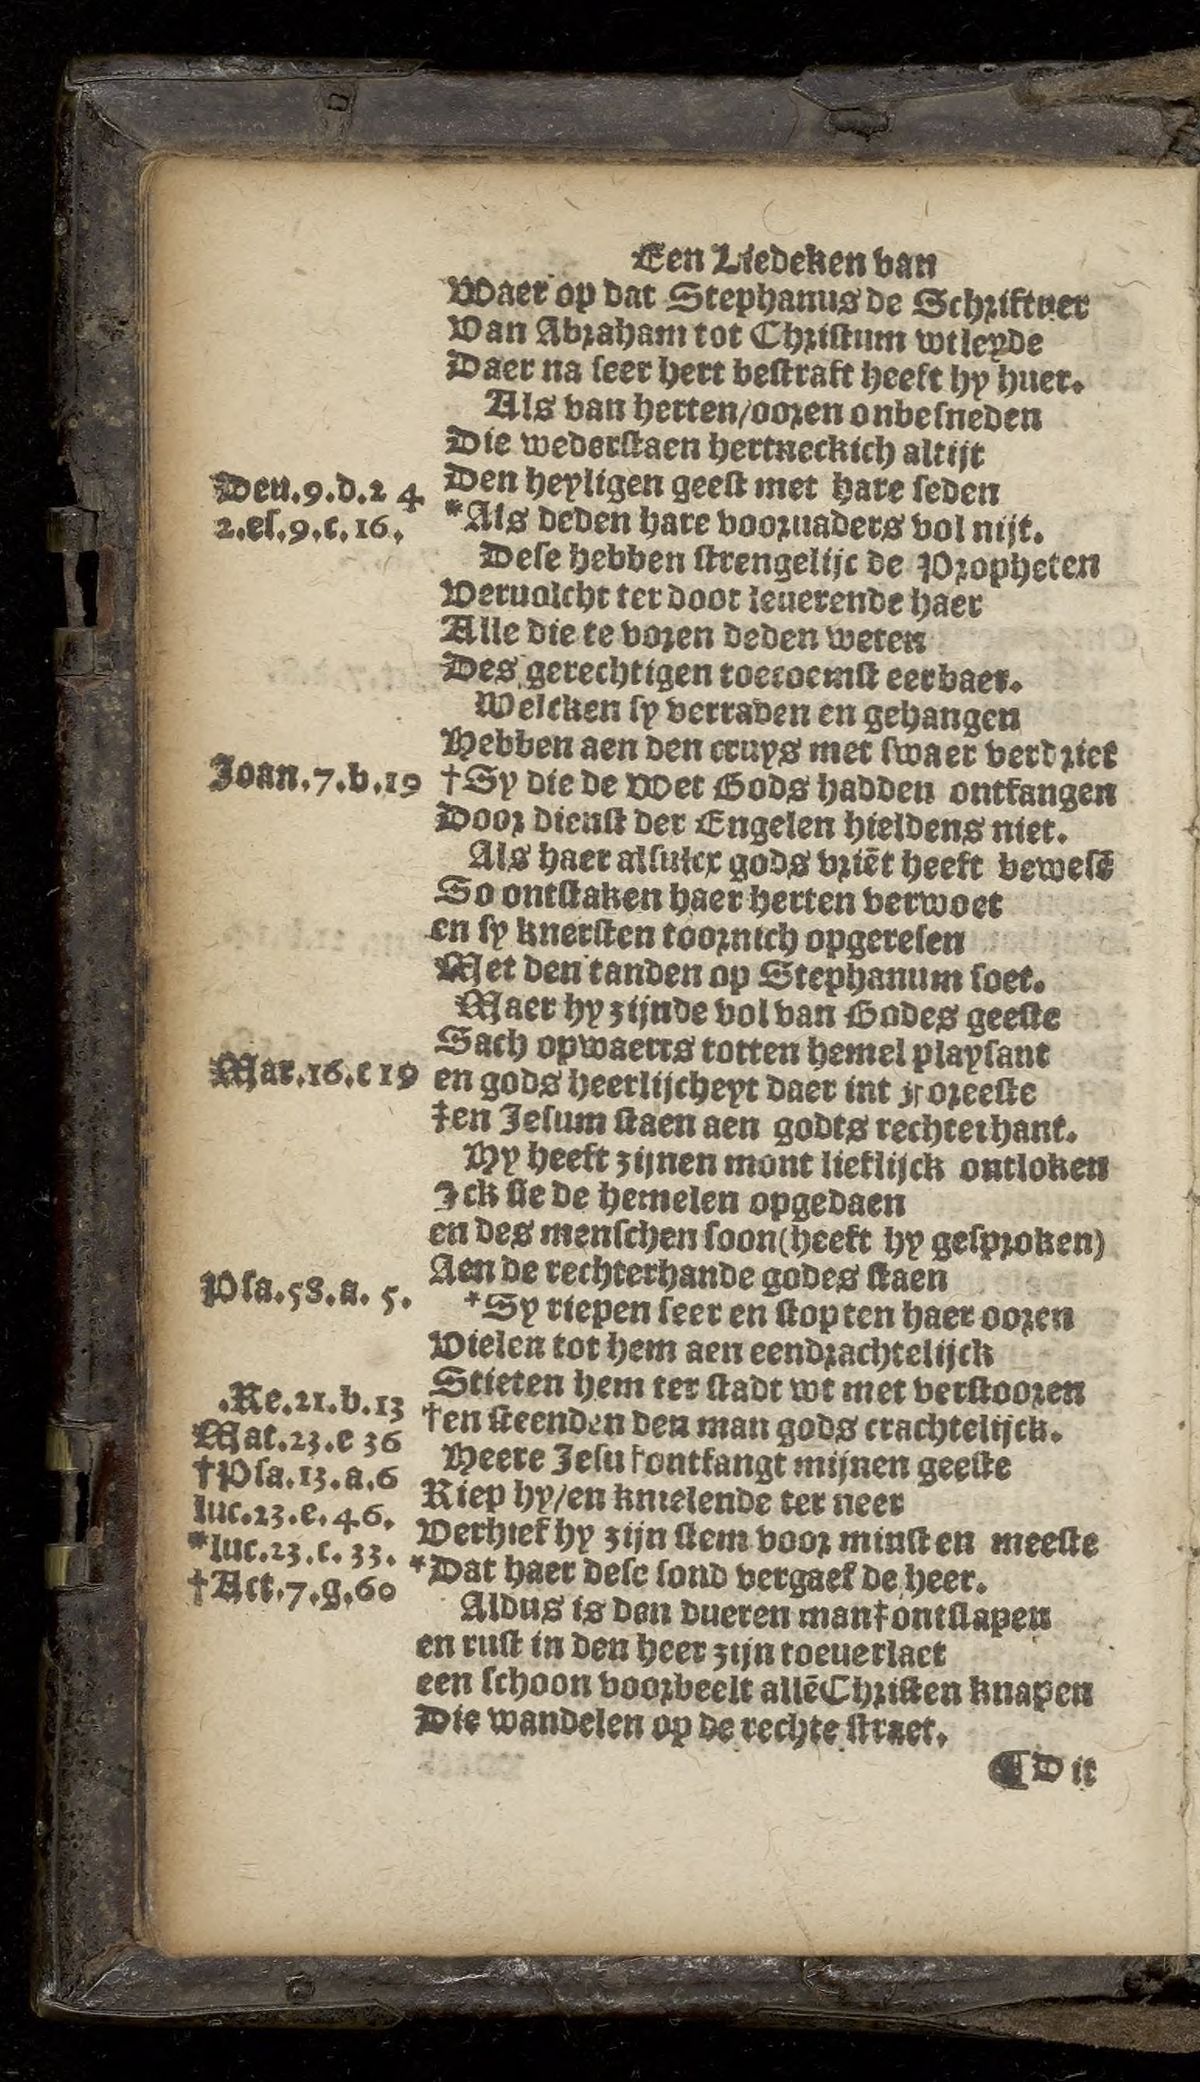 Een Liedeken van
Waer op dat Stephanus de Schriftuer
Van Abraham tot Christum wtleyde
Daer na seer hert bestraft heeft hy huer.
Als van herten/ooren onbesneden
Die wederstaen hertneckich altijt
Deu.9.d.24 Den heyligen geest met hare seden
2.es.9.c.16. *Als deden hare vooruaders vol nijt.
Dese hebben strengelijc de Propheten
Veruolcht ter doot leuerende haer
Alle die te voren deden weten
Des gerechtigen toecoemst eerbaer.
Welcken sy verraden en gehangen
Hebben aen den cruys met swaer verdriet
Joan.7.b.19 †Sy die de Wet Gods hadden ontfangen
Door dienst der Engelen hieldens niet.
Als haer alsulcx gods vriēt heeft bewesē
So ontstaken haer herten verwoet
en sy knersten toornich opgeresen
Met den tanden op Stephanum soet.
Maer hy zijnde vol van Godes geeste
Sach opwaerts totten hemel playsant
Mar.16.c 19 en gods heerlijcheyt daer int foreeste
‡en Jesum staen aen godts rechterhant.
Hy heeft zijnen mont lieflijck ontloken
Ick sie de hemelen opgedaen
en des menschen soon(heeft hy gesproken)
Aen de rechterhande godes staen
Psa.58.a. 5. *Sy riepen seer en stopten haer ooren
Vielen tot hem aen eendrachtelijck
Stieten hem ter stadt wt met verstooren
.Re.21.b.13 †en steenden den man gods crachtelijck.
Mat.23.e 36 Heere Jesu ‡ontfangt mijnen geeste
†Psa.13.a.6 Riep hy/en knielende ter neer
luc.23.e.46. Verhief hy zijn stem voor minsten meeste
*luc.23.c.33. *Dat haer dese sond vergaef de heer.
†Act.7.g.60 Aldus is den dueren man‡ontslapen
en rust in den heer zijn toeuerlaet
een schoon voorbeelt allē Christen knapen
Die wandelen op de rechte straet.
¶Dit